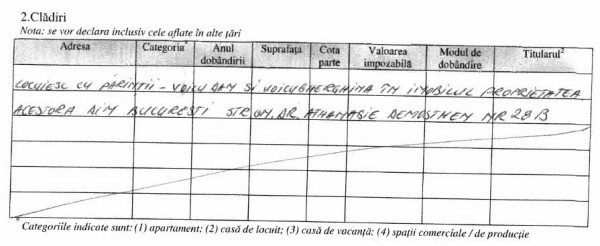 2.Clădiri
Nota: se vor declara inclusiv cele aflate în alte țări
Adresa Categoria* Anul dobândirii Suprafața Cota parte Valoarea impozabilă Modul de dobândire Titularul²
LOCUIESC CU PĂRINTII - VOICU DAN SI VOICU GHERGHINA ÎN IMOBILUL PROPRIETATEA
ACESTORA DIN BUCURESTI STR DR. ATHANASIE DEMOSTHEN NR 28B
*Categoriile indicate sunt: (1) apartament; (2) casă de locuit; (3) casă de vacanță; (4) spații comerciale / de producție